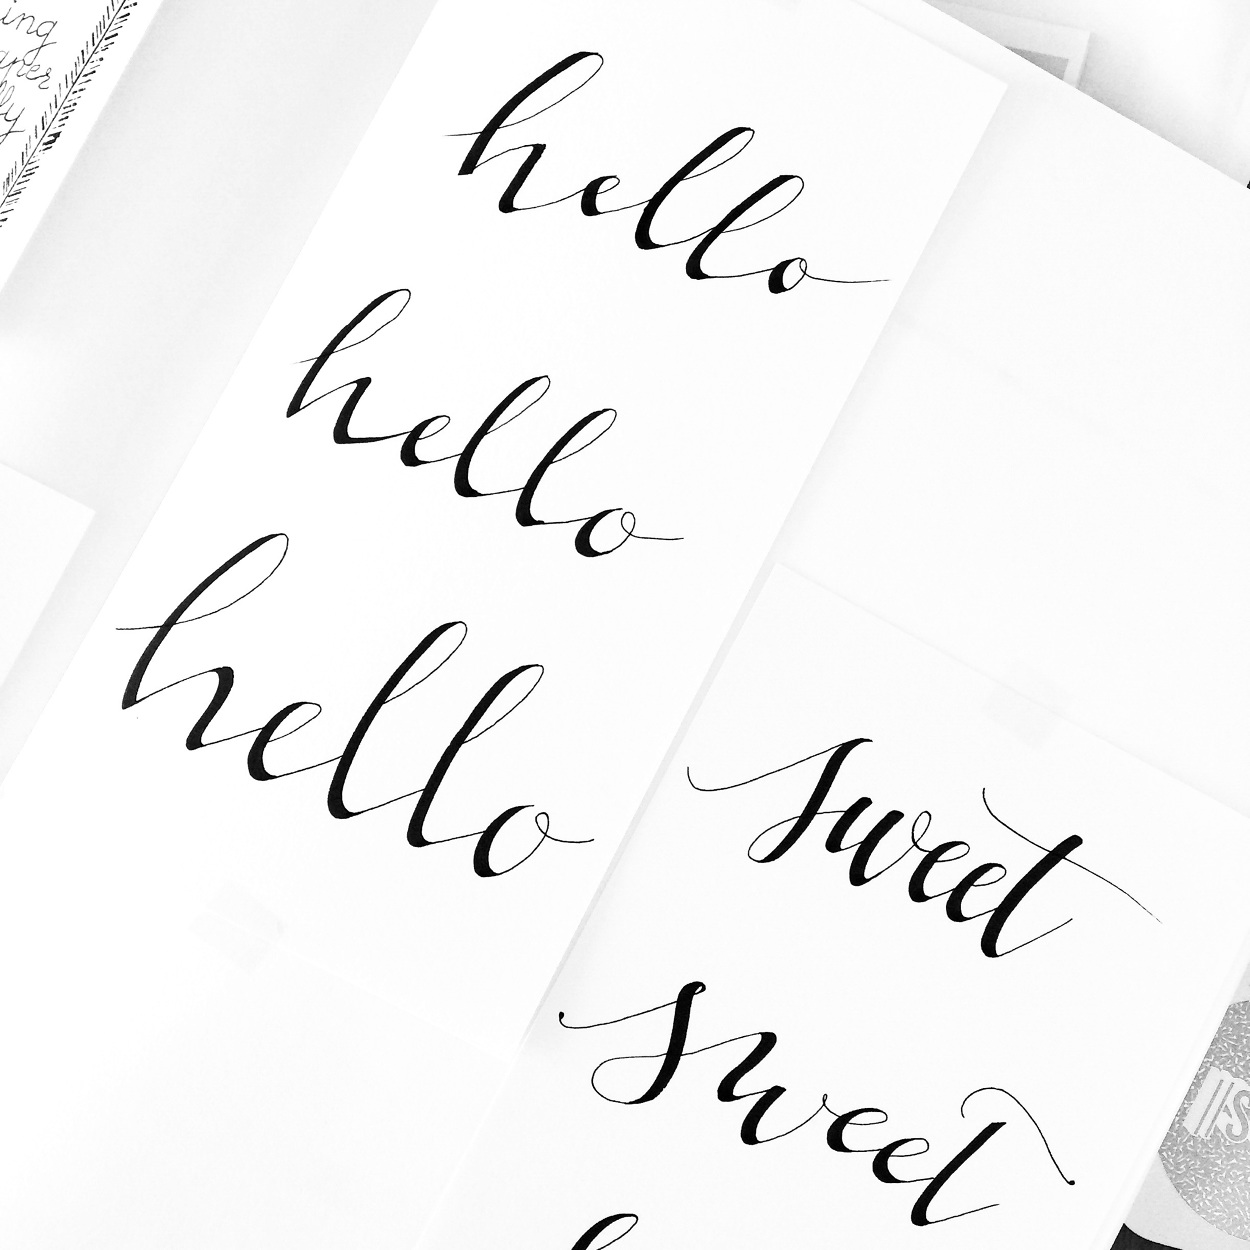 hello
hello
hello
sweet
sweet